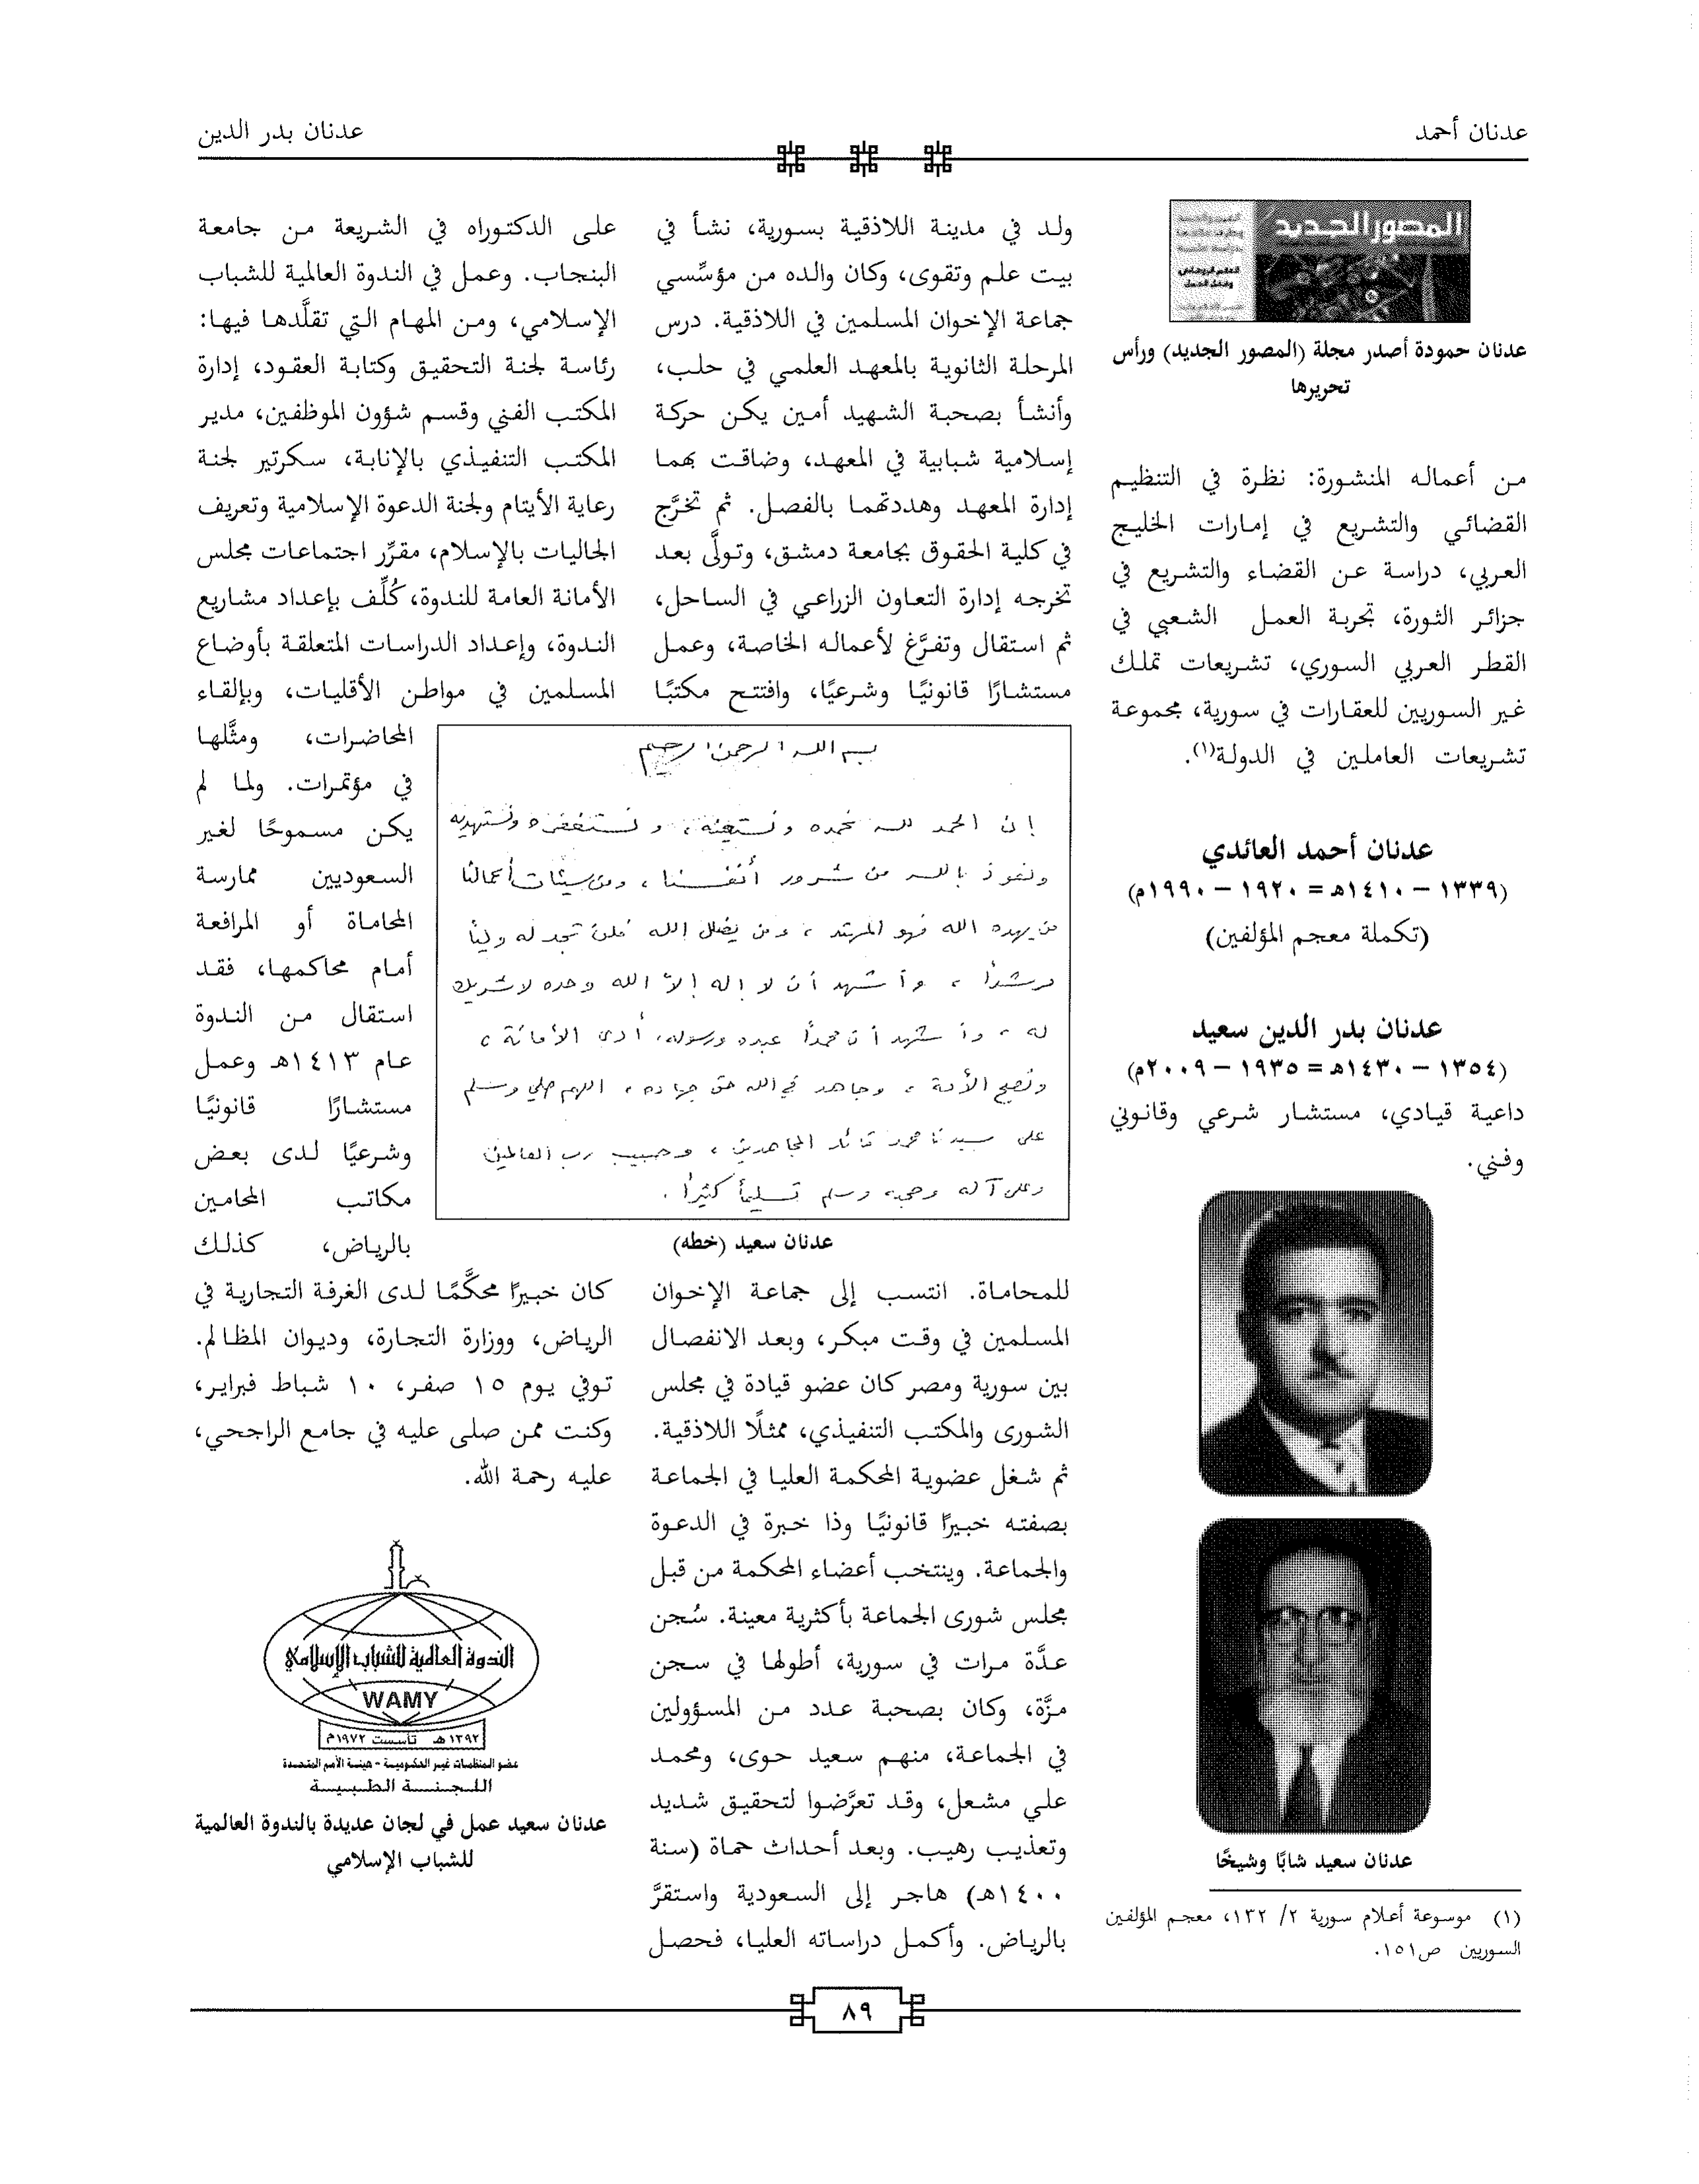 عدنان أحمد
عدنان بدر الدين
المصور الجديد
عدنان حمودة أصدر مجلة (المصور الجديد) ورأس
تحريرها
من أعماله المنشورة: نظرة في التنظيم
القضائي والتشريع في إمارات الخليج
العربي، دراسة عن القضاء والتشريع في
جزائر الثورة، تجربة العمل الشعبي في
القطر العربي السوري، تشريعات تملك
غير السوريين للعقارات في سورية، مجموعة
تشريعات العاملين في الدولة(١).
عدنان أحمد العائدي
(١٣٣٩ – ١٤١٠هـ = ١٩٢٠ – ١٩٩٠م)
(تكملة معجم المؤلفين)
عدنان بدر الدين سعيد
(١٣٥٤ – ١٤٣٠هـ = ١٩٣٥ – ٢٠٠٩م)
داعية قيادي، مستشار شرعي وقانوني
وفني.
عدنان سعيد شابًا وشيخًا
(١) موسوعة أعلام سورية ٢/ ١٣٢، معجم المؤلفين
السوريين ص١٥١.
ولد في مدينة اللاذقية بسورية، نشأ في
بيت علم وتقوى، وكان والده من مؤسِّسي
جماعة الإخوان المسلمين في اللاذقية. درس
المرحلة الثانوية بالمعهد العلمي في حلب،
وأنشأ بصحبة الشهيد أمين يكن حركة
إسلامية شبابية في المعهد، وضاقت بهما
إدارة المعهد وهددتهما بالفصل. ثم تخرَّج
في كلية الحقوق بجامعة دمشق، وتولَّى بعد
تخرجه إدارة التعاون الزراعي في الساحل،
ثم استقال وتفرَّغ لأعماله الخاصة، وعمل
مستشارًا قانونيًا وشرعيًا، وافتتح مكتبًا
بسم الله الرحمن الرحيم
إن الحمد لله نحمده ونستعينه، ونستغفره ونستهديه
ونعوذ بالله من شرور أنفسنا، ومن سيئات أعمالنا
من يهده الله فهو المهتد، ومن يضلل الله فلن تجد له وليًا
مرشدًا، وأشهد أن لا إله إلا الله وحده لا شريك
له، وأشهد أن محمدًا عبده ورسوله، أدى الأمانة،
ونصح الأمة، وجاهد في الله حق جهاده، اللهم صلي وسلم
على سيدنا محمد قائد المجاهدين، وحبيب رب العالمين
وعلى آله وصحبه وسلم تسليمًا كثيرًا.
عدنان سعيد (خطه)
للمحاماة. انتسب إلى جماعة الإخوان
المسلمين في وقت مبكر، وبعد الانفصال
بين سورية ومصر كان عضو قيادة في مجلس
الشورى والمكتب التنفيذي، ممثلًا اللاذقية.
ثم شغل عضوية المحكمة العليا في الجماعة
بصفته خبيرًا قانونيًا وذا خبرة في الدعوة
والجماعة. وينتخب أعضاء المحكمة من قبل
مجلس شورى الجماعة بأكثرية معينة. سُجن
عدَّة مرات في سورية، أطولها في سجن
مزَّة، وكان بصحبة عدد من المسؤولين
في الجماعة، منهم سعيد حوى، ومحمد
علي مشعل، وقد تعرَّضوا لتحقيق شديد
وتعذيب رهيب. وبعد أحداث حماة (سنة
١٤٠٠هـ) هاجر إلى السعودية واستقرَّ
بالرياض. وأكمل دراساته العليا، فحصل
على الدكتوراه في الشريعة من جامعة
البنجاب. وعمل في الندوة العالمية للشباب
الإسلامي، ومن المهام التي تقلَّدها فيها:
رئاسة لجنة التحقيق وكتابة العقود، إدارة
المكتب الفني وقسم شؤون الموظفين، مدير
المكتب التنفيذي بالإنابة، سكرتير لجنة
رعاية الأيتام ولجنة الدعوة الإسلامية وتعريف
الجاليات بالإسلام، مقرِّر اجتماعات مجلس
الأمانة العامة للندوة، كُلِّف بإعداد مشاريع
الندوة، وإعداد الدراسات المتعلقة بأوضاع
المسلمين في مواطن الأقليات، وبإلقاء
المحاضرات، ومثَّلها
في مؤتمرات. ولما لم
يكن مسموحًا لغير
السعوديين ممارسة
المحاماة أو المرافعة
أمام محاكمها، فقد
استقال من الندوة
عام ١٤١٣هـ وعمل
مستشارًا قانونيًا
وشرعيًا لدى بعض
مكاتب المحامين
بالرياض، كذلك
كان خبيرًا محكَّمًا لدى الغرفة التجارية في
الرياض، ووزارة التجارة، وديوان المظالم.
توفي يوم ١٥ صفر، ١٠ شباط فبراير،
وكنت ممن صلى عليه في جامع الراجحي،
عليه رحمة الله.
الندوة العالمية للشباب الإسلامي
WAMY
١٣٩٢هـ تأسست ١٩٧٢م
عضو المنظمات غير الحكومية - هيئة الأمم المتحدة
اللجنة الطبية
عدنان سعيد عمل في لجان عديدة بالندوة العالمية
للشباب الإسلامي
٨٩